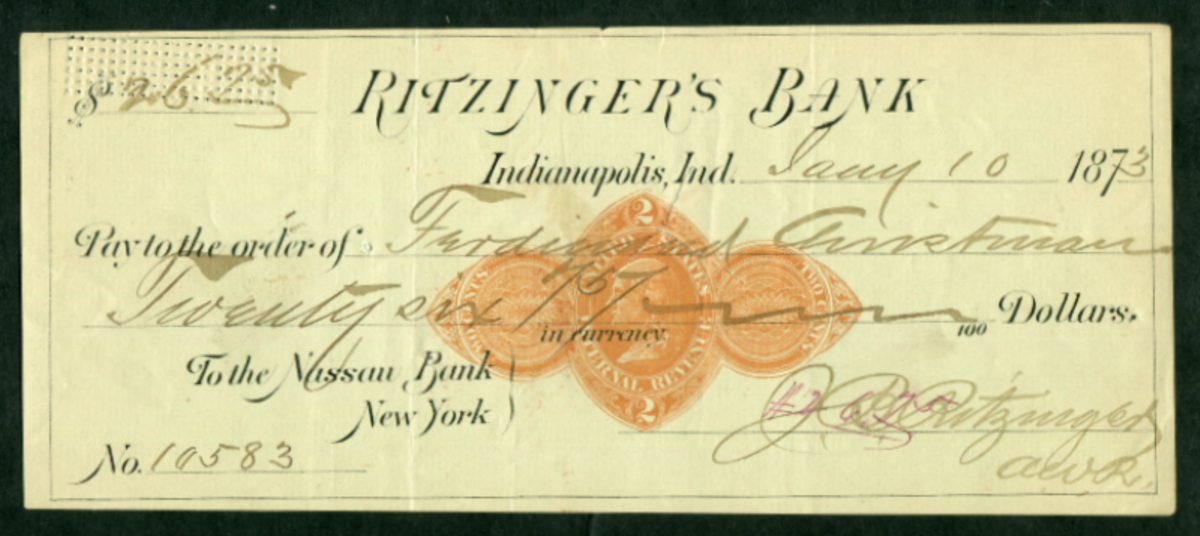 $ 26.25
RITZINGER'S BANK
Indianapolis, Ind. Jany 10 1873
Pay to the order of Ferdinand Christman
Twenty six 100 Dollars.
in currency
To the Nassau Bank
New York
No. 10583
2
INTERNAL REVENUE
2
J. B. Ritzinger